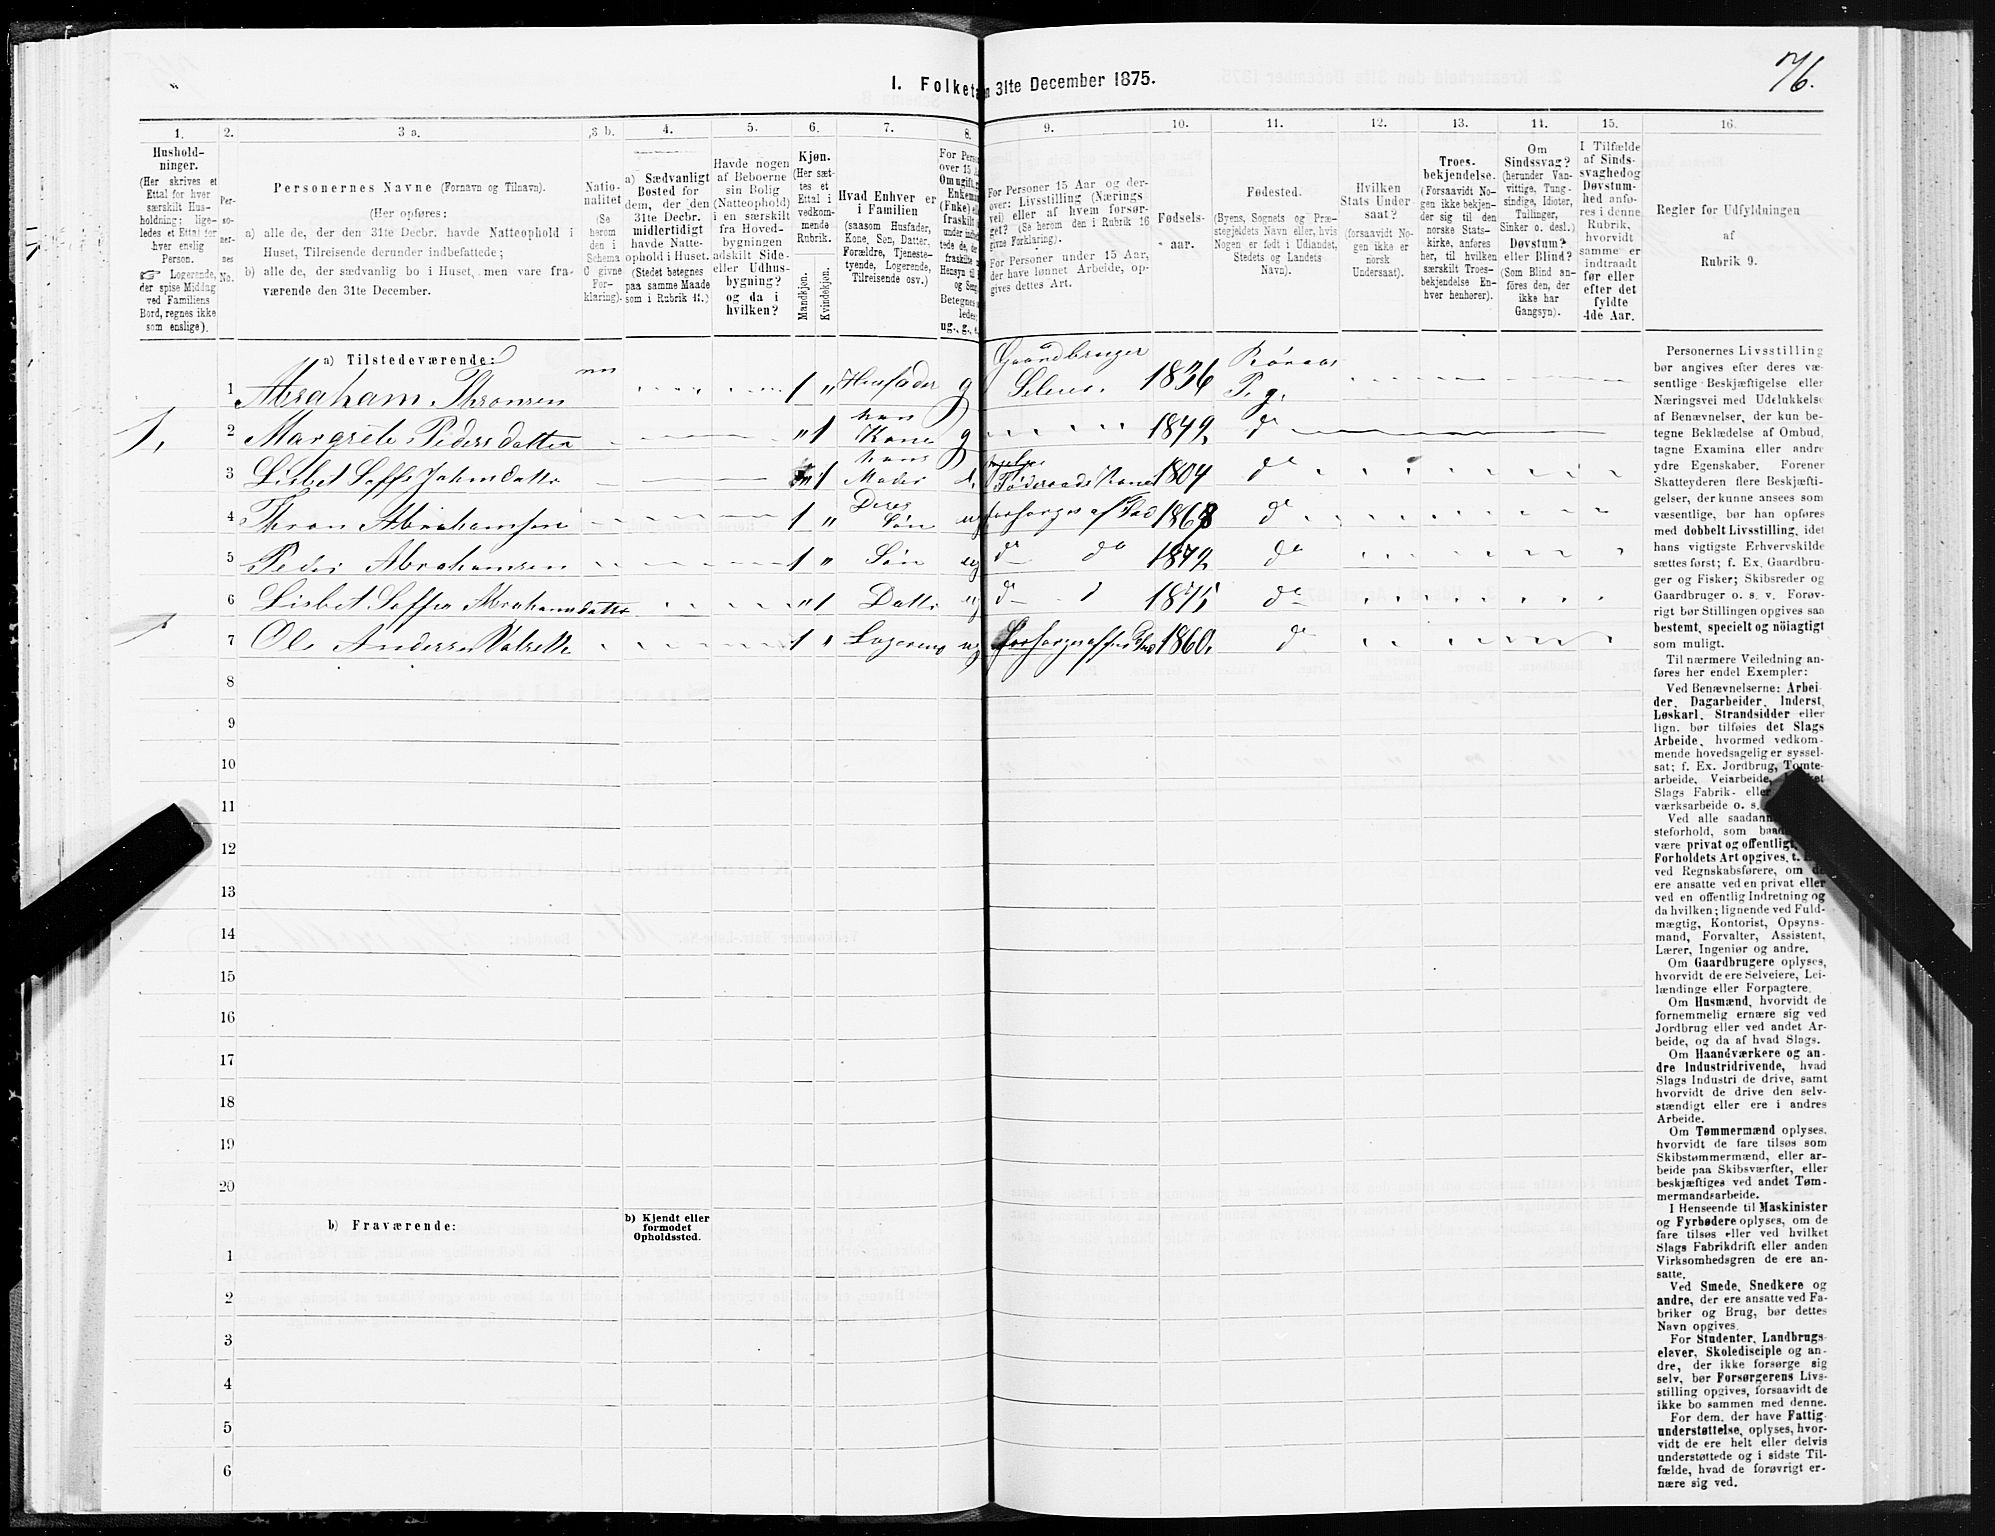 76.
I. Folketa n 31te December 1875.
1. 2. 3 a. 3 b. 4. 5. 6. 7. 8. 9. 10. 11. 12. 13. 14. 15. 16.
Hushold-
ninger.
(Her skrives et
Ettal for hver
særskilt Hus-
holdning; lige-
ledes et Ettal for
hver enslig
Person.
☞ Logerende,
der spise Middag
ved Familiens
Bord, regnes ikke
som enslige).
Per-
so-
ner-
nes
No.
Personernes Navne (Fornavn og Tilnavn).
(Her opføres:
a) alle de, der den 31te Decbr. havde Natteophold i
Huset, Tilreisende derunder indbefattede;
b) alle de, der sædvanlig bo i Huset, men vare fra-
værende den 31te December.
Natio-
nalitet
(Se
herom
den i
Schema
C givne
For-
klaring).
a) Sædvanligt
Bosted for
dem, der den
31te Decbr.
midlertidigt
havde Natte-
ophold i Huset.
(Stedet betegnes
paa samme Maade
som i Rubrik 11.)
Havde nogen
af Beboerne
sin Bolig
(Natteophold)
i en særskilt
fra Hoved-
bygningen
adskilt Side-
eller Udhus-
bygning?
og da i
hvilken?
Kjøn.
(Her sæt-
tes et
Ettal i
vedkom-
mende
Rubrik.
Mandkjøn.
Kvindekjøn.
Hvad Enhver er
i Familien
(saasom Husfader,
Kone, Søn, Datter,
Forældre, Tjeneste-
tyende, Logerende,
Tilreisende osv.)
For Perso
over 15 A
Om ugift, g
Enkema
(Fnke) el
fraskilt
under indbe
tede de, de
fraskilte
Hensyn til
og Seng
Betegnes
ledes:
ug., g., e.
For Personer 15 Aar og der-
over: Livsstilling (Nærings
vei) eller af hvem forsør-
get? (Se herom den i Rubrik 16
givne Forklaring).
For Personer under 15 Aar,
der have lønnet Arbeide, op-
gives dettes Art.
Fødsels-
aar.
Fødested.
(Byens, Sognets og Præ-
stegjeldets Navn eller, hvis
Nogen er født i Udlandet,
Stedets og Landets
Navn).
Hvilken
Stats Under
saat?
(forsaavidt No-
gen ikke er
norsk
Undersaat).
Troes-
bekjendelse.
(Forsaavidt No-
gen ikke bekjen-
der sig til den
norske Stats-
kirke, anføres
her, til hvilken
særskilt Troes-
bekjendelse En-
hver henhører).
Om
Sindssvag?
(herunder Van-
vittige, Tung-
sindige, Idioter,
Tullinger,
Sinker o. desl.)
Døvstum?
eller Blind?
(Som Blind an-
föres den, der
ikke har
Gangsyn).
I Tilfælde
af Sinds-
svaghed og
Døvstum-
hed anfø-
res i denne
Rubrik,
hvorvidt
samme er
indtraadt
før eller
efter det
fyldte
4de Aar.
Regler for Udfyldningen
af
Rubrik 9.
a) Tilstedeværende:
1 Abraham Thronsen nn 1 " Husfader g Gaardbruger Seleier 1836 Röraas P. g.
2 Margrete Pedersdatter " 1 hans Kone g 1849 do
3 Lisbet Soffi Johnsdatter " 1 hans Moder Föderaads Kone 1804 do
4 Thron Abrahamsen 1 " Deres Søn ug forsørges af Fad 1868 do
5 Peder Abrahamsen 1 " Søn ug do do 1872 do
6 Lisbet Soffie Abrahamsdatter " 1 Datter ug do d 1875 do
7 Ole Andersen 1 " Logerende ug 1860. do
8
9
10
11
12
13
14
15
16
17
18
19
20
b) Fraværende:
b) Kjendt eller
formodet
Opholdssted.
1
2
3
4
5
6
Personernes Livsstilling
bør angives efter deres væ-
sentlige Beskjæftigelse eller
Næringsvei med Udelukkelse
af Benævnelser, der kun be-
tegne Beklædelse af Ombud,
tagne Examina eller andre
ydre Egenskaber. Forener
Skatteyderen flere Beskjæfti-
gelser, der kunne ansees som
væsentlige, bør han opføres
med dobbelt Livsstilling, idet
hans vigtigste Erhvervskilde
sættes først; f. Ex. Gaardbru-
ger og Fisker; Skibsreder og
Gaardbruger o. s. v. Forøv-
rigt bør Stillingen opgives saa
bestemt, specielt og nöiagtigt
som muligt.
Til nærmere Veiledning an-
føres her endel Exempler:
Ved Benævnelserne: Arbei
der, Dagarbeider, Inderst,
Løskarl, Strandsidder eller
lign. bør tilføies det Slags
Arbeide, hvormed vedkom-
mende hovedsagelig er syssel-
sat; f. Ex. Jordbrug, Tomte-
arbeide, Veiarbeide,
Slags Fabrik- eller
værksarbeide o. s.
Ved alle saadann
steforhold, som baad
være privat og offentligt,
Forholdets Art opgives, t.
ved Regnskabsførere, om de
ere ansatte ved en privat eller
ved en offentlig Indretning og
da hvilken; lignende ved Fuld-
mægtig, Kontorist, Opsyns-
mand, Forvalter, Assistent,
Lærer, Ingeniør og andre.
Om Gaardbrugere oplyses,
hvorvidt de ere Selveiere, Lei-
lændinge eller Forpagtere.
Om Husmænd, hvorvidt de
fornemmelig ernære sig ved
Jordbrug eller ved andet Ar-
beide, og da af hvad Slags.
Om Haandværkere og an-
dre Industridrivende, hvad
Slags Industri de drive, samt
hvorvidt de drive den selv-
stændigt eller ere i andres
Arbeide.
Om Tømmermænd oplyses,
hvorvidt de fare tilsøs som
Skibstømmermænd, eller ar-
beide paa Skibsværfter, eller
beskjæftiges ved andet Tøm-
mermandsarbeide.
I Henseende til Maskinister
og Fyrbødere oplyses, om de
fare tilsøs eller ved hvilket
Slags Fabrikdrift eller anden
Virksomhedsgren de ere an-
satte.
Ved Smede, Snedkere og
andre, der ere ansatte ved Fa-
briker og Brug, bør dettes
Navn opgives.
For Studenter, Landbrugs-
elever, Skoledisciple og an-
dre, der ikke forsørge sig
selv, bør Forsørgerens Livs-
stilling opgives, forsaavidt de
ikke bo sammen med denne.
For dem, der have Fattig-
understøttelse, oplyses, hvor-
vidt de ere helt eller delvis
understøttede og i sidste Til-
fælde, hvad de forøvrigt er-
nære sig ved.